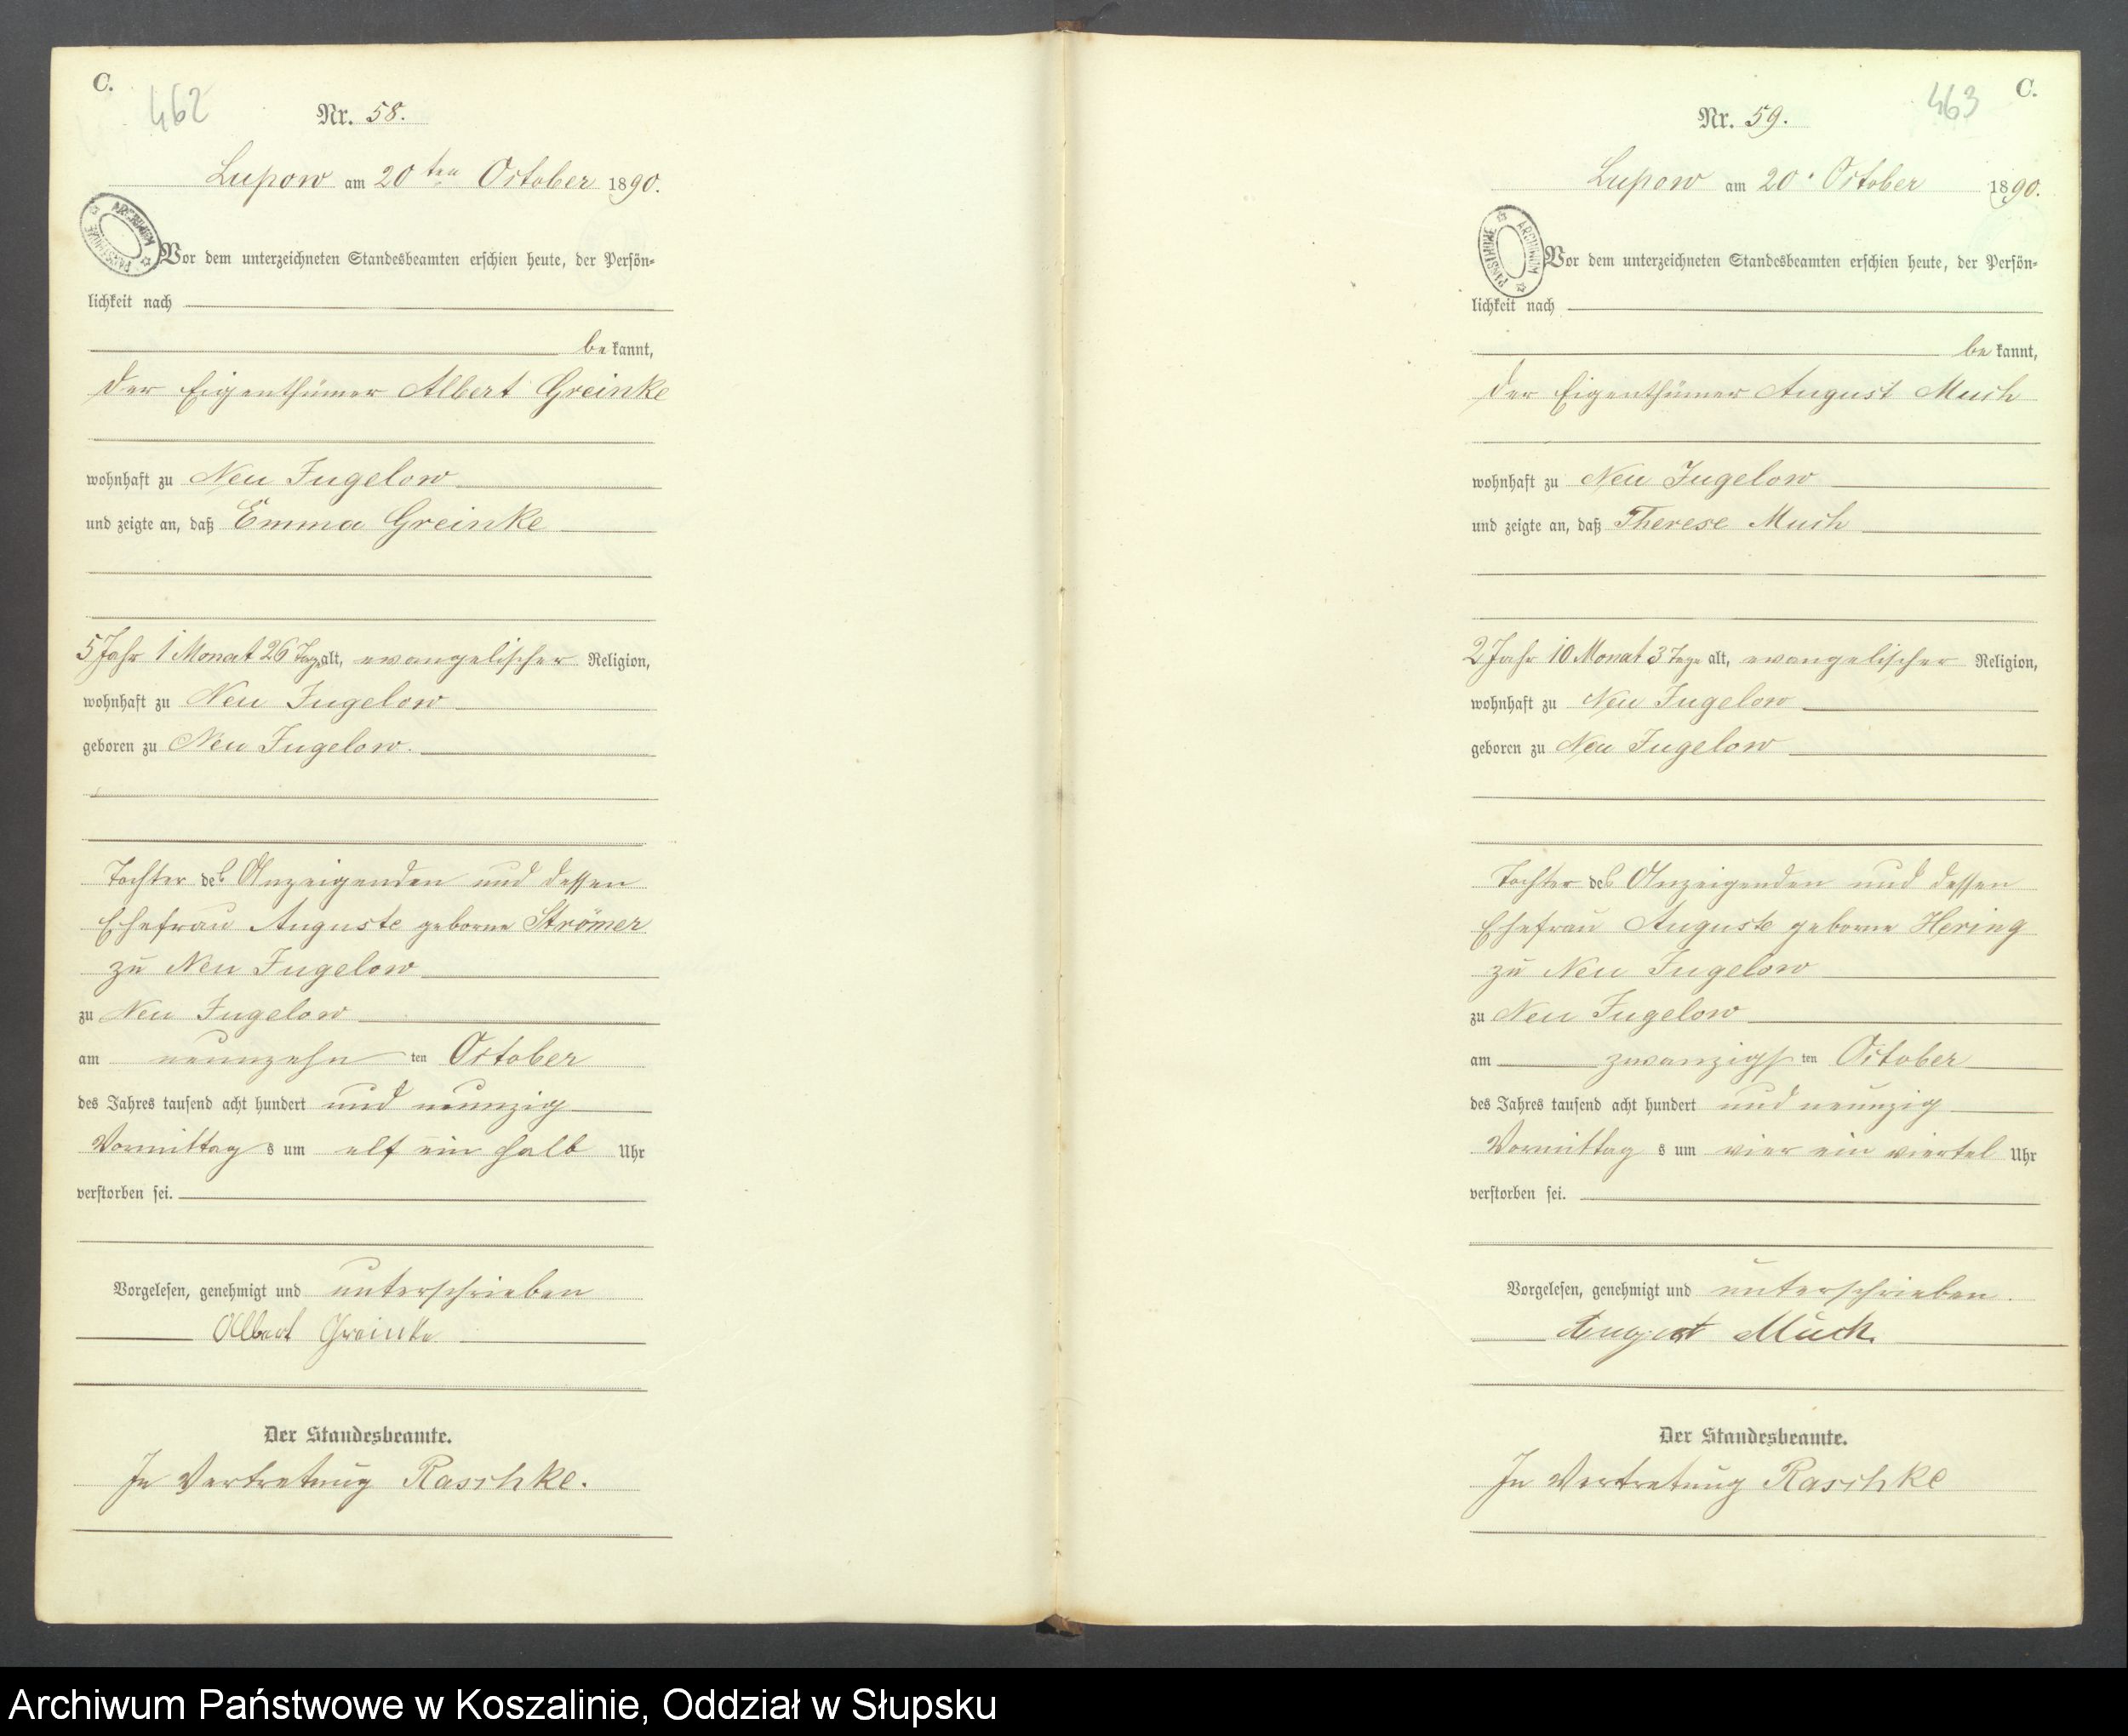 C.
462
Nr. 58.
Lupow am 20ten October 1890.
ARCHIWUM PAŃSTWOWE
Vor dem unterzeichneten Standesbeamten erschien heute, der Persön-
lichkeit nach
bekannt,
der Eigenthümer Albert Greinke
wohnhaft zu Neu Jugelow
und zeigte an, daß Emma Greinke
5 Jahr 1 Monat 26 Tage alt, evangelischer Religion,
wohnhaft zu Neu Jugelow
geboren zu Neu Jugelow.
Tochter des Anzeigenden und dessen
Ehefrau Auguste geborne Strömer
zu Neu Jugelow
zu Neu Jugelow
am neunzehnten October
des Jahres tausend acht hundert und neunzig
Vormittags um elf ein halb Uhr
verstorben sei.
Vorgelesen, genehmigt und unterschrieben
Albert Greinke
Der Standesbeamte.
In Vertretung Raschke.
C.
463
Nr. 59.
Lupow am 20. October 1890.
ARCHIWUM PAŃSTWOWE
Vor dem unterzeichneten Standesbeamten erschien heute, der Persön-
lichkeit nach
bekannt,
der Eigenthümer August Much
wohnhaft zu Neu Jugelow
und zeigte an, daß Therese Much
2 Jahr 10 Monat 3 Tage alt, evangelischer Religion,
wohnhaft zu Neu Jugelow
geboren zu Neu Jugelow
Tochter des Anzeigenden und dessen
Ehefrau Auguste geborne Hering
zu Neu Jugelow
zu Neu Jugelow
am zwanzigsten October
des Jahres tausend acht hundert und neunzig
Vormittags um vier ein viertel Uhr
verstorben sei.
Vorgelesen, genehmigt und unterschrieben.
August Much.
Der Standesbeamte.
In Vertretung Raschke
Archiwum Państwowe w Koszalinie, Oddział w Słupsku